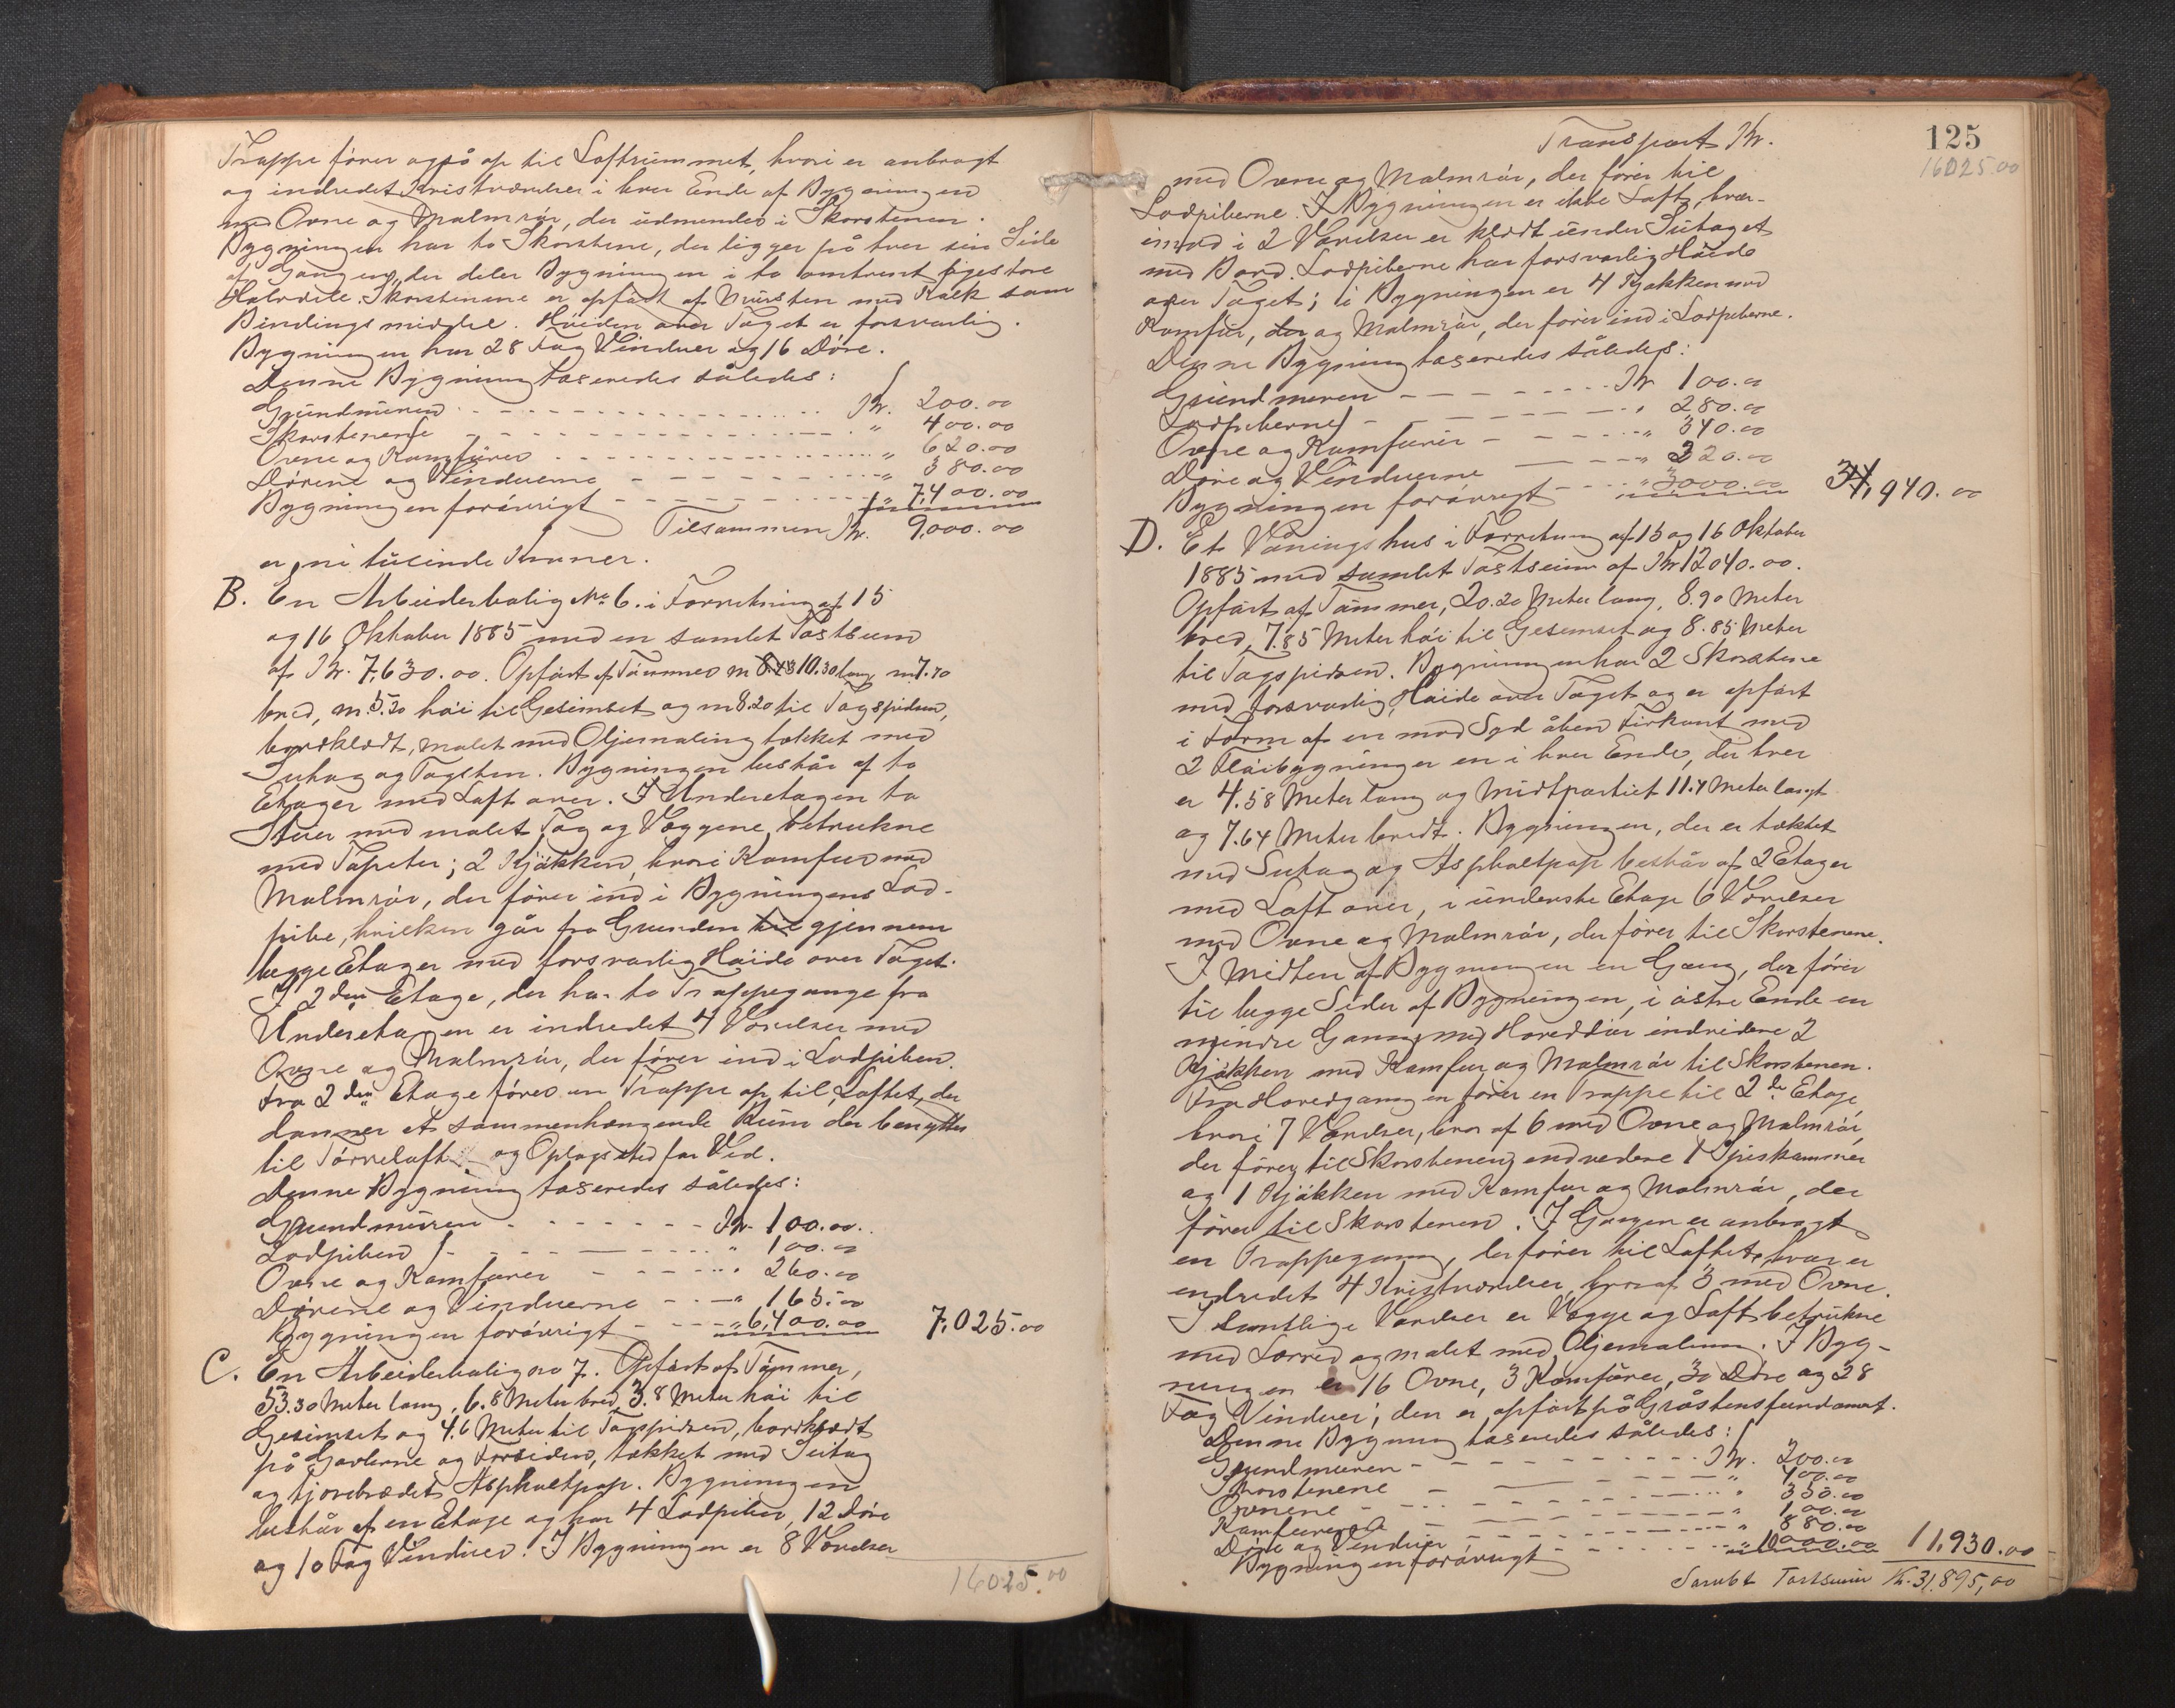 Trappe fører også op til Loftsrummet, hvori er anbragt
og indredet Kvistværelser i hver Ende af Bygningen
med Ovne og Malmrør, der udmunder i Skorstenen.
Bygningen har to Skorstene, der ligger på hver sin Side
af Gangen, der deler Bygningen i to omtrent ligestore
Halvdele. Skorstenene er opført af Mursten med Kalk som
Bindingsmiddel. Høiden over Taget er forsvarlig.
Bygningen har 28 Fag Vinduer og 16 Døre.
Denne Bygning taxeredes således:
Grundmuren Kr. 200.00
Skorstenene " 400.00
Ovne og Kamfurer " 620.00
Dørene og Vinduerne " 380.00
Bygningen forøvrigt " 7,400.00
Tilsammen Kr. 9,000.00
er, ni tusinde Kroner.
B. En Arbeiderbolig No. 6. i Forretning af 15
og 16 Oktober 1885 med en samlet Taxtsum
af Kr. 7,630.00. Opført af Tømmer m 10.30 lang m 7.70
bred, m. 5.20 høi til Gesimset og m 8.20 til Tagspidsen,
bordklædt, malet med Oljemaling tækket med
Sutag og Tagsten. Bygningen består af to
Etager med Loft over. I Underetagen to
Stuer med malet Tag og Væggene betrukne
med Tapeter; 2 Kjøkken, hvori Kamfur med
Malmrør, der fører ind i Bygningens Lod-
pibe, hvilken går fra Grunden til gjennem
begge Etager med forsvarlig Høide over Taget.
I 2den Etage, der har to Trappegange fra
Underetagen er indredet 4 Værelser med
Ovne og Malmrør, der fører ind i Lodpiben.
Fra 2den Etage fører en Trappe op til Loftet, der
danner et sammenhængende Rum der benyttes
til Tørreloft og Oplagssted for Ved.
Denne Bygning taxeredes således:
Grundmuren Kr. 100.00.
Lodpiben " 100.00
Ovne og Kamfurer " 260.00
Dørene og Vinduerne " 165.00
Bygningen forøvrigt " 6,400.00 7,025.00
C. En Arbeiderbolig no 7. Opført af Tømmer,
53.30 Meter lang, 6.8 Meter bred, 3.8 Meter høi til
Gesimset og 4.6 Meter til Tagspidsen, bordklædt
på Gavlerne og Forsiden, tækket med Sutag
og tjærebrædet Asphaltpap. Bygningen
består af en Etage og har 4 Lodpiber, 12 Døre
og 10 Fag Vinduer. I Bygningen er 8 Værelser
16025.00
125
Transport Kr. 16025.00
med Ovne og Malmrør, der fører til
Lodpiberne. I Bygningen er ikke Loft, hvor-
imod i 2 Værelser er klædt under Sutaget
med Bord. Lodpiberne har forsvarlig Høide
over Taget; i Bygningen er 4 Kjøkken med
Kamfur, der og Malmrør, der fører ind i Lodpiberne.
Denne Bygning taxeredes således:
Grundmuren Kr 100.00
Lodpiberne " 280.00
Ovne og Kamfurer " 340.00
Døre og Vinduerne " 220.00
Bygningen forøvrigt " 3000.00 3,940.00
D. Et Våningshus i Forretning af 15 og 16 Oktober
1885 med samlet Taxtsum af Kr 12040.00.
Opført af Tømmer, 20.20 Meter lang, 8.90 Meter
bred, 7.85 Meter høi til Gesimset og 8.85 Meter
til Tagspidsen. Bygningen har 2 Skorstene
med forsvarlig Høide over Taget og er opført
i Form af en mod Syd åben Firkant med
2 Fløibygninger en i hver Ende, der hver
er 4.58 Meter lang og Midtpartiet 11.4 Meter langt
og 7.64 Meter bredt. Bygningen, der er tækket
med Sutag og Asphaltpap består af 2 Etager
med Loft over, i underste Etage 6 Værelser
med Ovne og Malmrør, der fører til Skorstenene.
I Midten af Bygningen en Gang, der fører
til begge Sider af Bygningen, i østre Ende en
mindre Gang med Hoveddør indvidere 2
Kjøkken med Kamfur og Malmrør til Skorstenen.
Fra Hovedgangen fører en Trappe til 2de Etage
hvori 7 Værelser, hvor af 6 med Ovne og Malmrør,
der fører til Skorstenen, endvidere 1 Spiskammer
og 1 Kjøkken med Kamfur og Malmrør, der
fører til Skorstenen. I Gangen er anbragt
en Trappegang, der fører til Loftet, hvor er
indredet 4 Kvistværelser, hvoraf 3 med Ovne.
I samtlige Værelser er Vægge og Loft betrukne
med Lærred og malet med Oljemaling. I Byg-
ningen er 16 Ovne, 3 Kamfurer, 30 Døre og 38
Fag Vinduer; den er opført på Gråstensfundament.
Denne Bygning taxeredes således:
Grundmuren Kr. 200.00
Skorstenene " 400.00
Ovnene " 350.00
Kamfurerne " 100.00
Døre og Vinduer " 880.00
Bygningen forøvrigt " 10000.00 11,930.00
Samlet Taxtsum Kr. 31,895,00